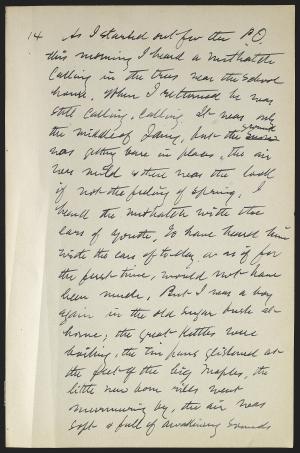 14 As I started out for the P.O.
this morning I heard a nuthatch
calling in the trees near the school
house. When I returned he was
still calling, calling. It was only
the middle of Jany, but the ground
was getting bare in places, the air
was mild & there was the look
if not the feeling of spring. I
heard the nuthatch with the
ears of youth. To have heard him
with the ears of to-day, or as if for
the first time, would not have
been much. But I was a boy
again in the old sugar bush at
home; the great kettles were
boiling, the tin pans glistened at
the feet of the big maples, the
little new born rills went
murmuring by, the air was
soft & full of awakening sounds